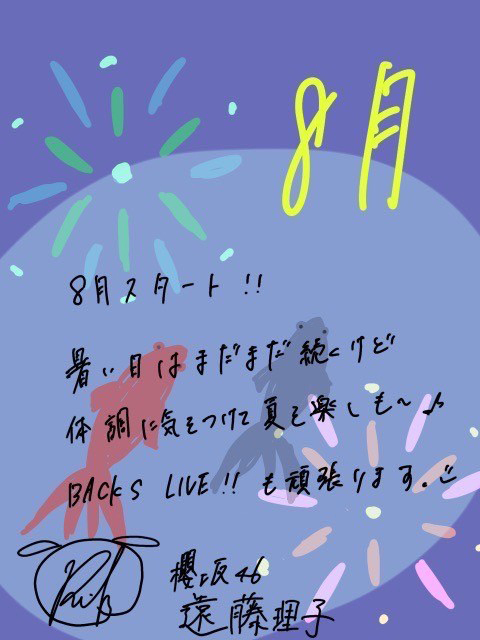 8月
8月スタート!!
暑い日はまだまだ続くけど
体調に気をつけて夏を楽しも〜♪
BACKS LIVE!!も頑張ります。
櫻坂46
遠藤理子